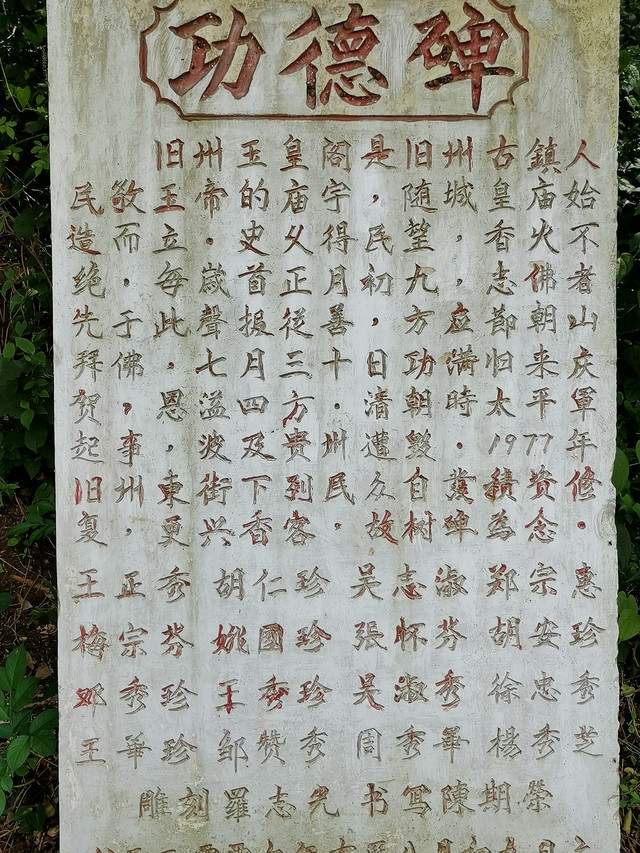 功德碑
旧州玉皇阁是旧州古鎮人
民敬玉帝的庙宇，随城皇庙始
造而立．史久得民望，香火不
绝，每崴首正月初九，志佛者
先于此聲报従善，方应節朝山
拜佛．七月三十日功满归来庆
贺，恩溢四方．清朝時太平軍
起事，波及贵州遭毁．1977年
旧州東街下列民众自發積资修
复，更兴香客．故树碑為念．
王正秀 胡仁珍 吴志淑 郑宗惠
梅宗芬 姚國珍 張怀芬 胡安珍
邓秀珍 王秀珍 吴淑秀 徐忠秀
王華珍 邹赞秀 周秀華 楊秀芝
雕刻羅志光 书写陳期荣